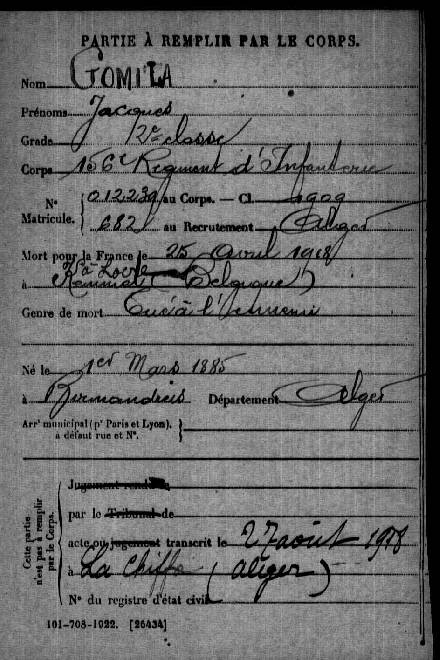 PARTIE À REMPLIR PAR LE CORPS.
Nom GOMILA
Prénoms Jacques
Grade 2e classe
Corps 156e Régiment d'Infanterie
N° Matricule. { 012239 au Corps. — Cl. 1909
682 au Recrutement Alger
Mort pour la France le 25 Avril 1918
à Locre
à Kemmel (Belgique)
Genre de mort Tué à l'Ennemi
Né le 1er Mars 1885
à Birmandreis Département Alger
Arr' municipal (p' Paris et Lyon), à défaut rue et N°. }
Cette partie n'est pas à remplir par le Corps.
Jugement rendu le
par le Tribunal de
acte ou jugement transcrit le 27 août 1918
à La Chiffa (Alger)
N° du registre d'état civil
101-708-1922. [26434]